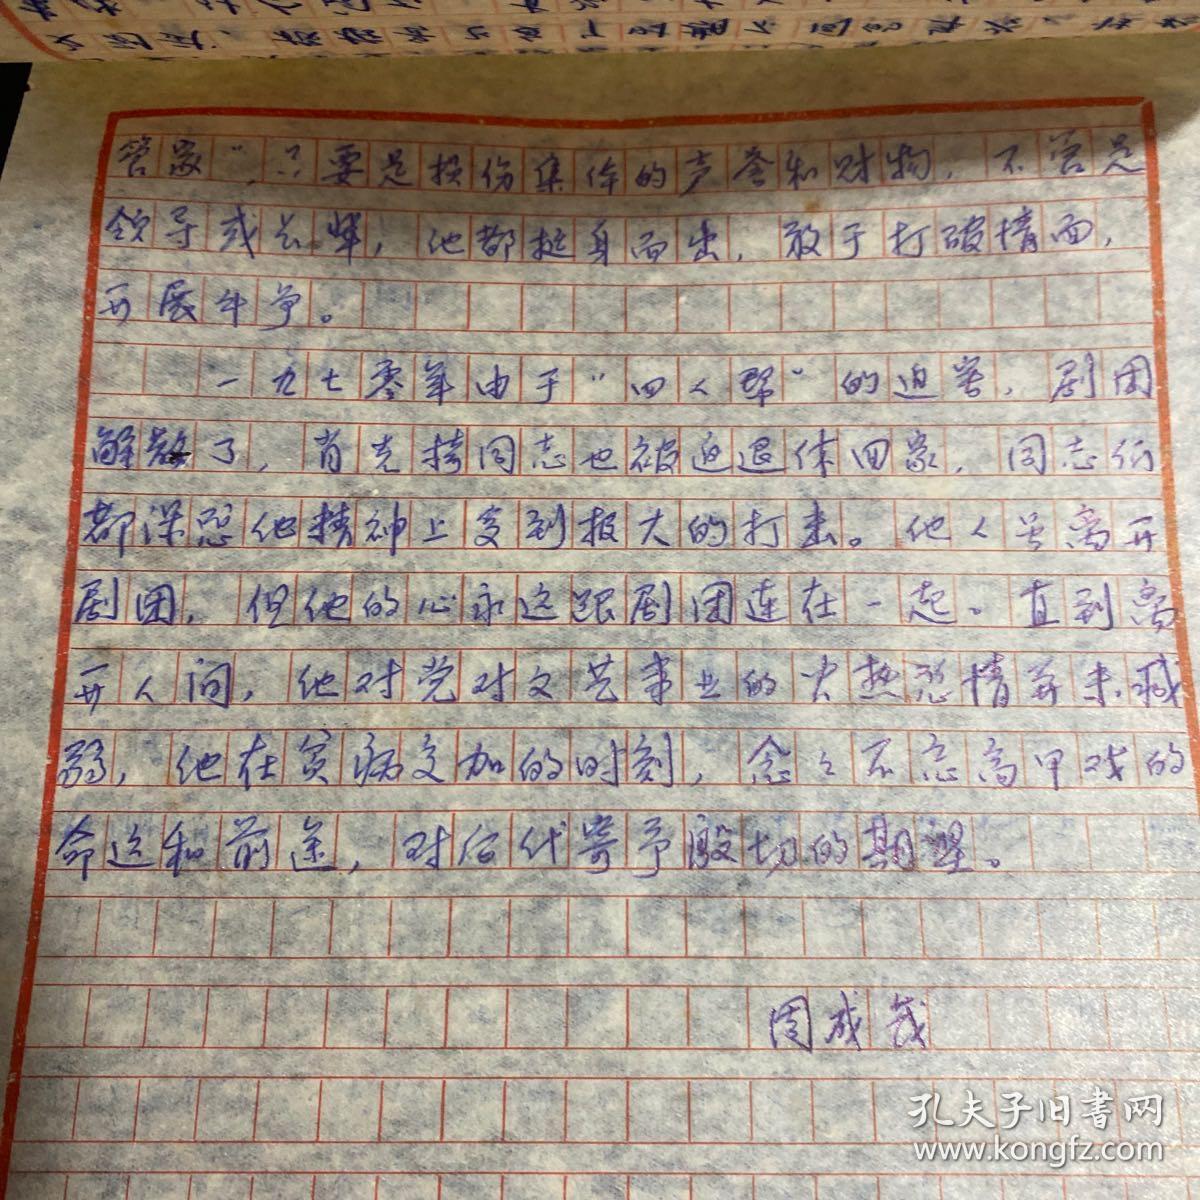 管家”，只要是损伤集体的声誉和财物，不管是
领导或长辈，他都挺身而出，敢于打破情面，
开展斗争。
一九七零年由于“四人帮”的迫害，剧团
解散了，肖克持同志也被迫退休回家，同志们
都深感他精神上受到报大的打击。他人虽离开
剧团，但他的心永远跟剧团连在一起。直到离
开人间，他对党对文艺事业的火热热情并未减
弱，他在贫病交加的时刻，念々不忘高甲戏的
命运和前途，对后代寄予殷切的期望。
周成茂
孔夫子旧书网
www.kongfz.com